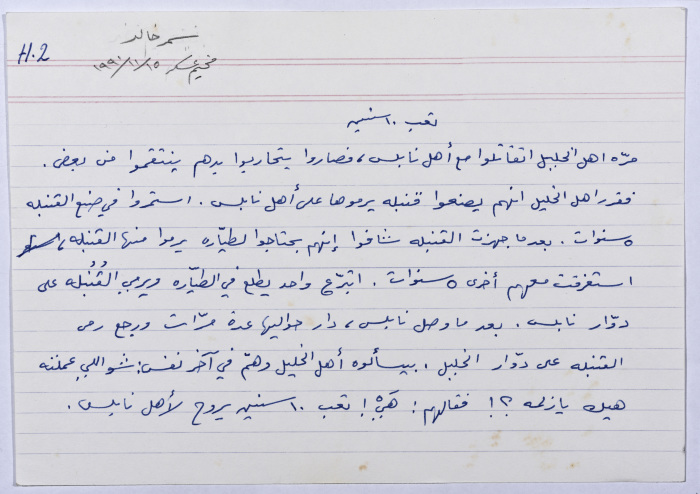 H.2
نمر خالد
مخيم عسكر ١٩٩١/١١/١٥
تعب ١٠ سنين
مرّه اهل الخليل اتقاتلوا مع أهل نابلس، فصاروا يتحاربوا بدهم ينتقموا من بعض.
فقرر اهل الخليل انهم يصنعوا قنبله يرموها على أهل نابلس. استمروا في صنع القنبله
٥ سنوات. بعد ما جهزت القنبله شافوا إنهم بحتاجوا لطيّاره يرموا منها القنبله،
استغرقت معهم أخرى ٥ سنوات. اتبرّع واحد يطلع في الطيّاره ويرمي القُنبله على
دوّار نابلس. بعد ما وصل نابلس، دار حواليها عدة مرّات ورجع رمى
القنبله على دوّار الخليل. بيسألوه أهل الخليل وهمّ في آخر نفس: شو اللي عملته
هيك يا زلمه ؟! فقالهم: هَئ! تعب ١٠ سنين يروح لأهل نابلس.